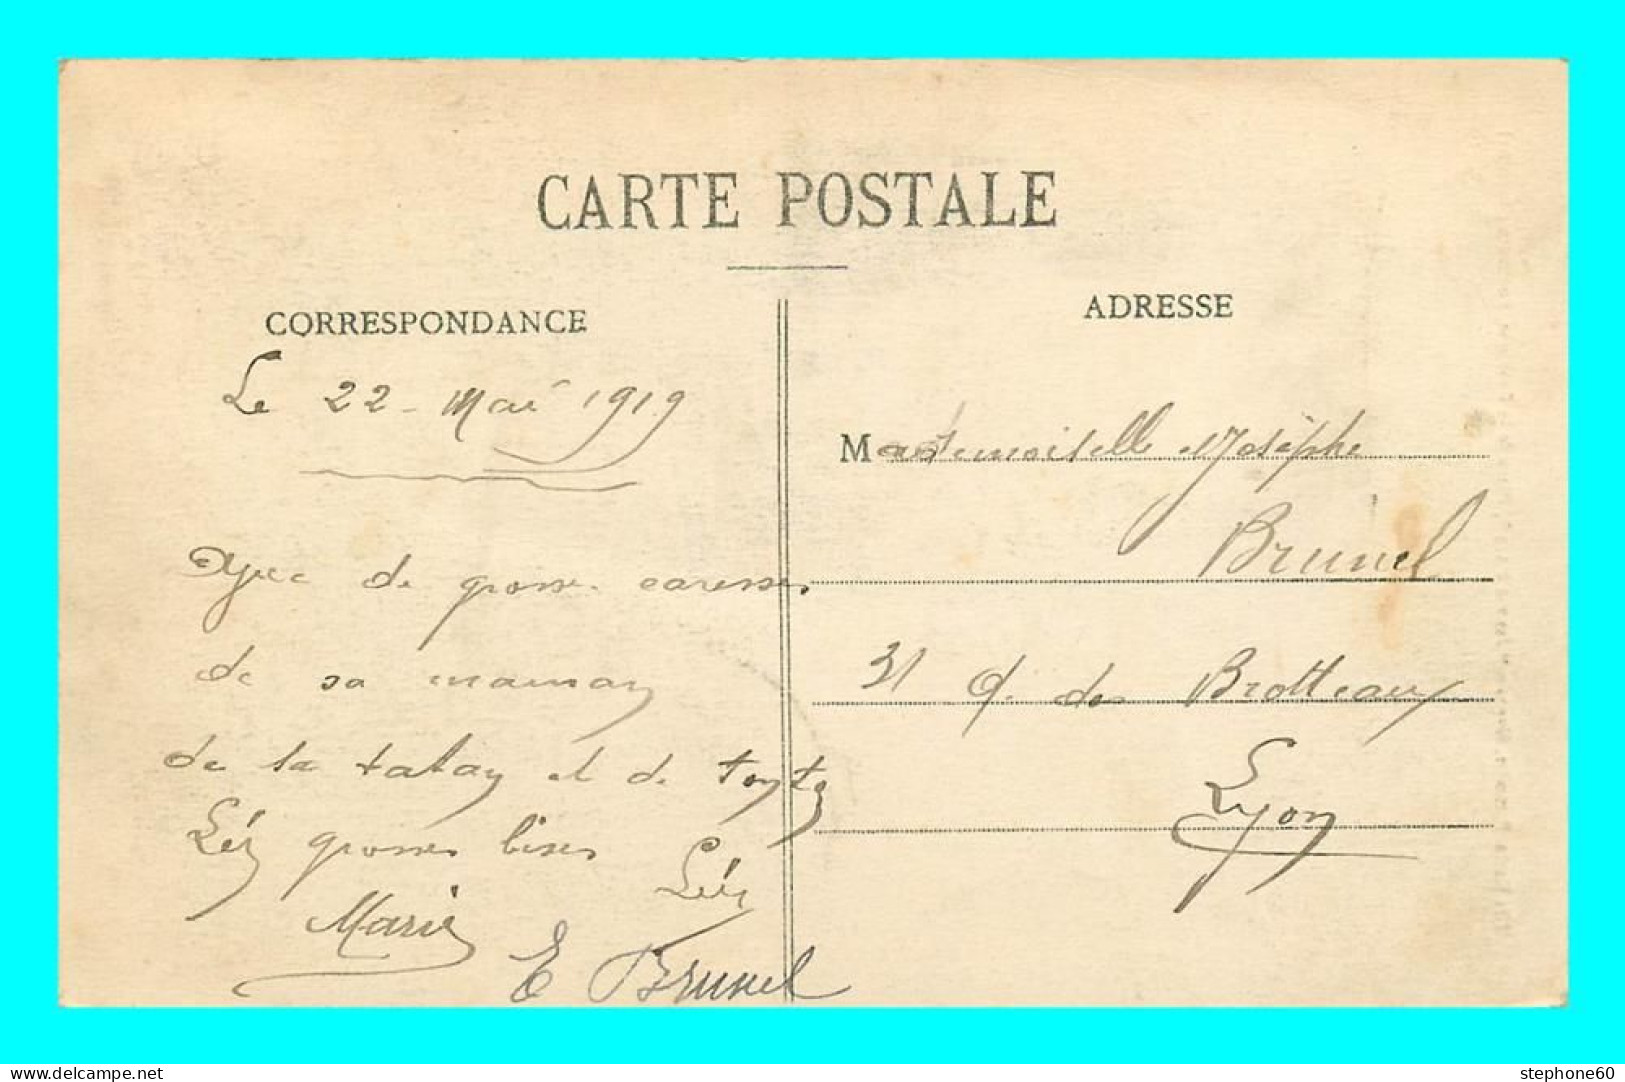 CARTE POSTALE
CORRESPONDANCE
Le 22 - Mai 1919
de grosse caresses
de sa maman
de la tatay et de tonton
Léy grosses bises Léy
Marie
E Brunel
ADRESSE
Mademoiselle Josèphe
Brunel
31 q. des Brotteaux
Lyon
www.delcampe.net
stephone60